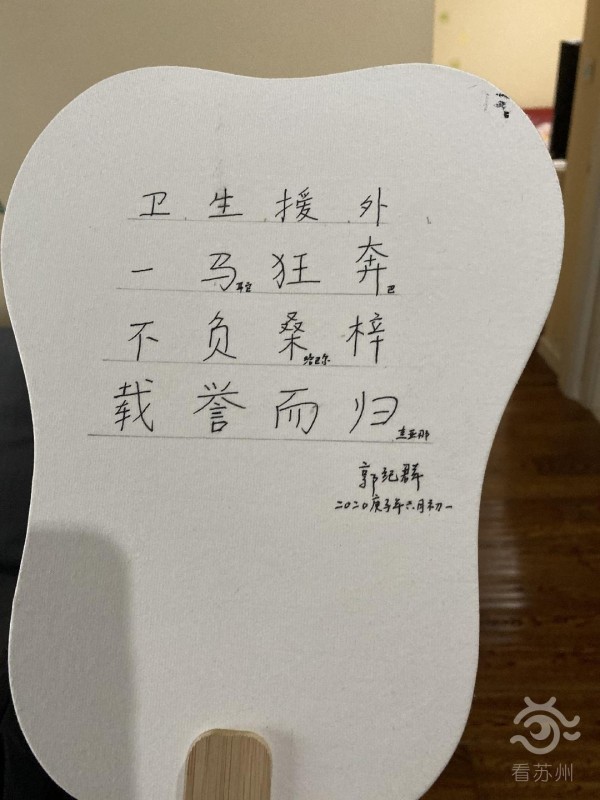 卫生援外
一马狂奔
不负桑梓
载誉而归
郭纪群
二〇二〇庚子年六月初一
看苏州